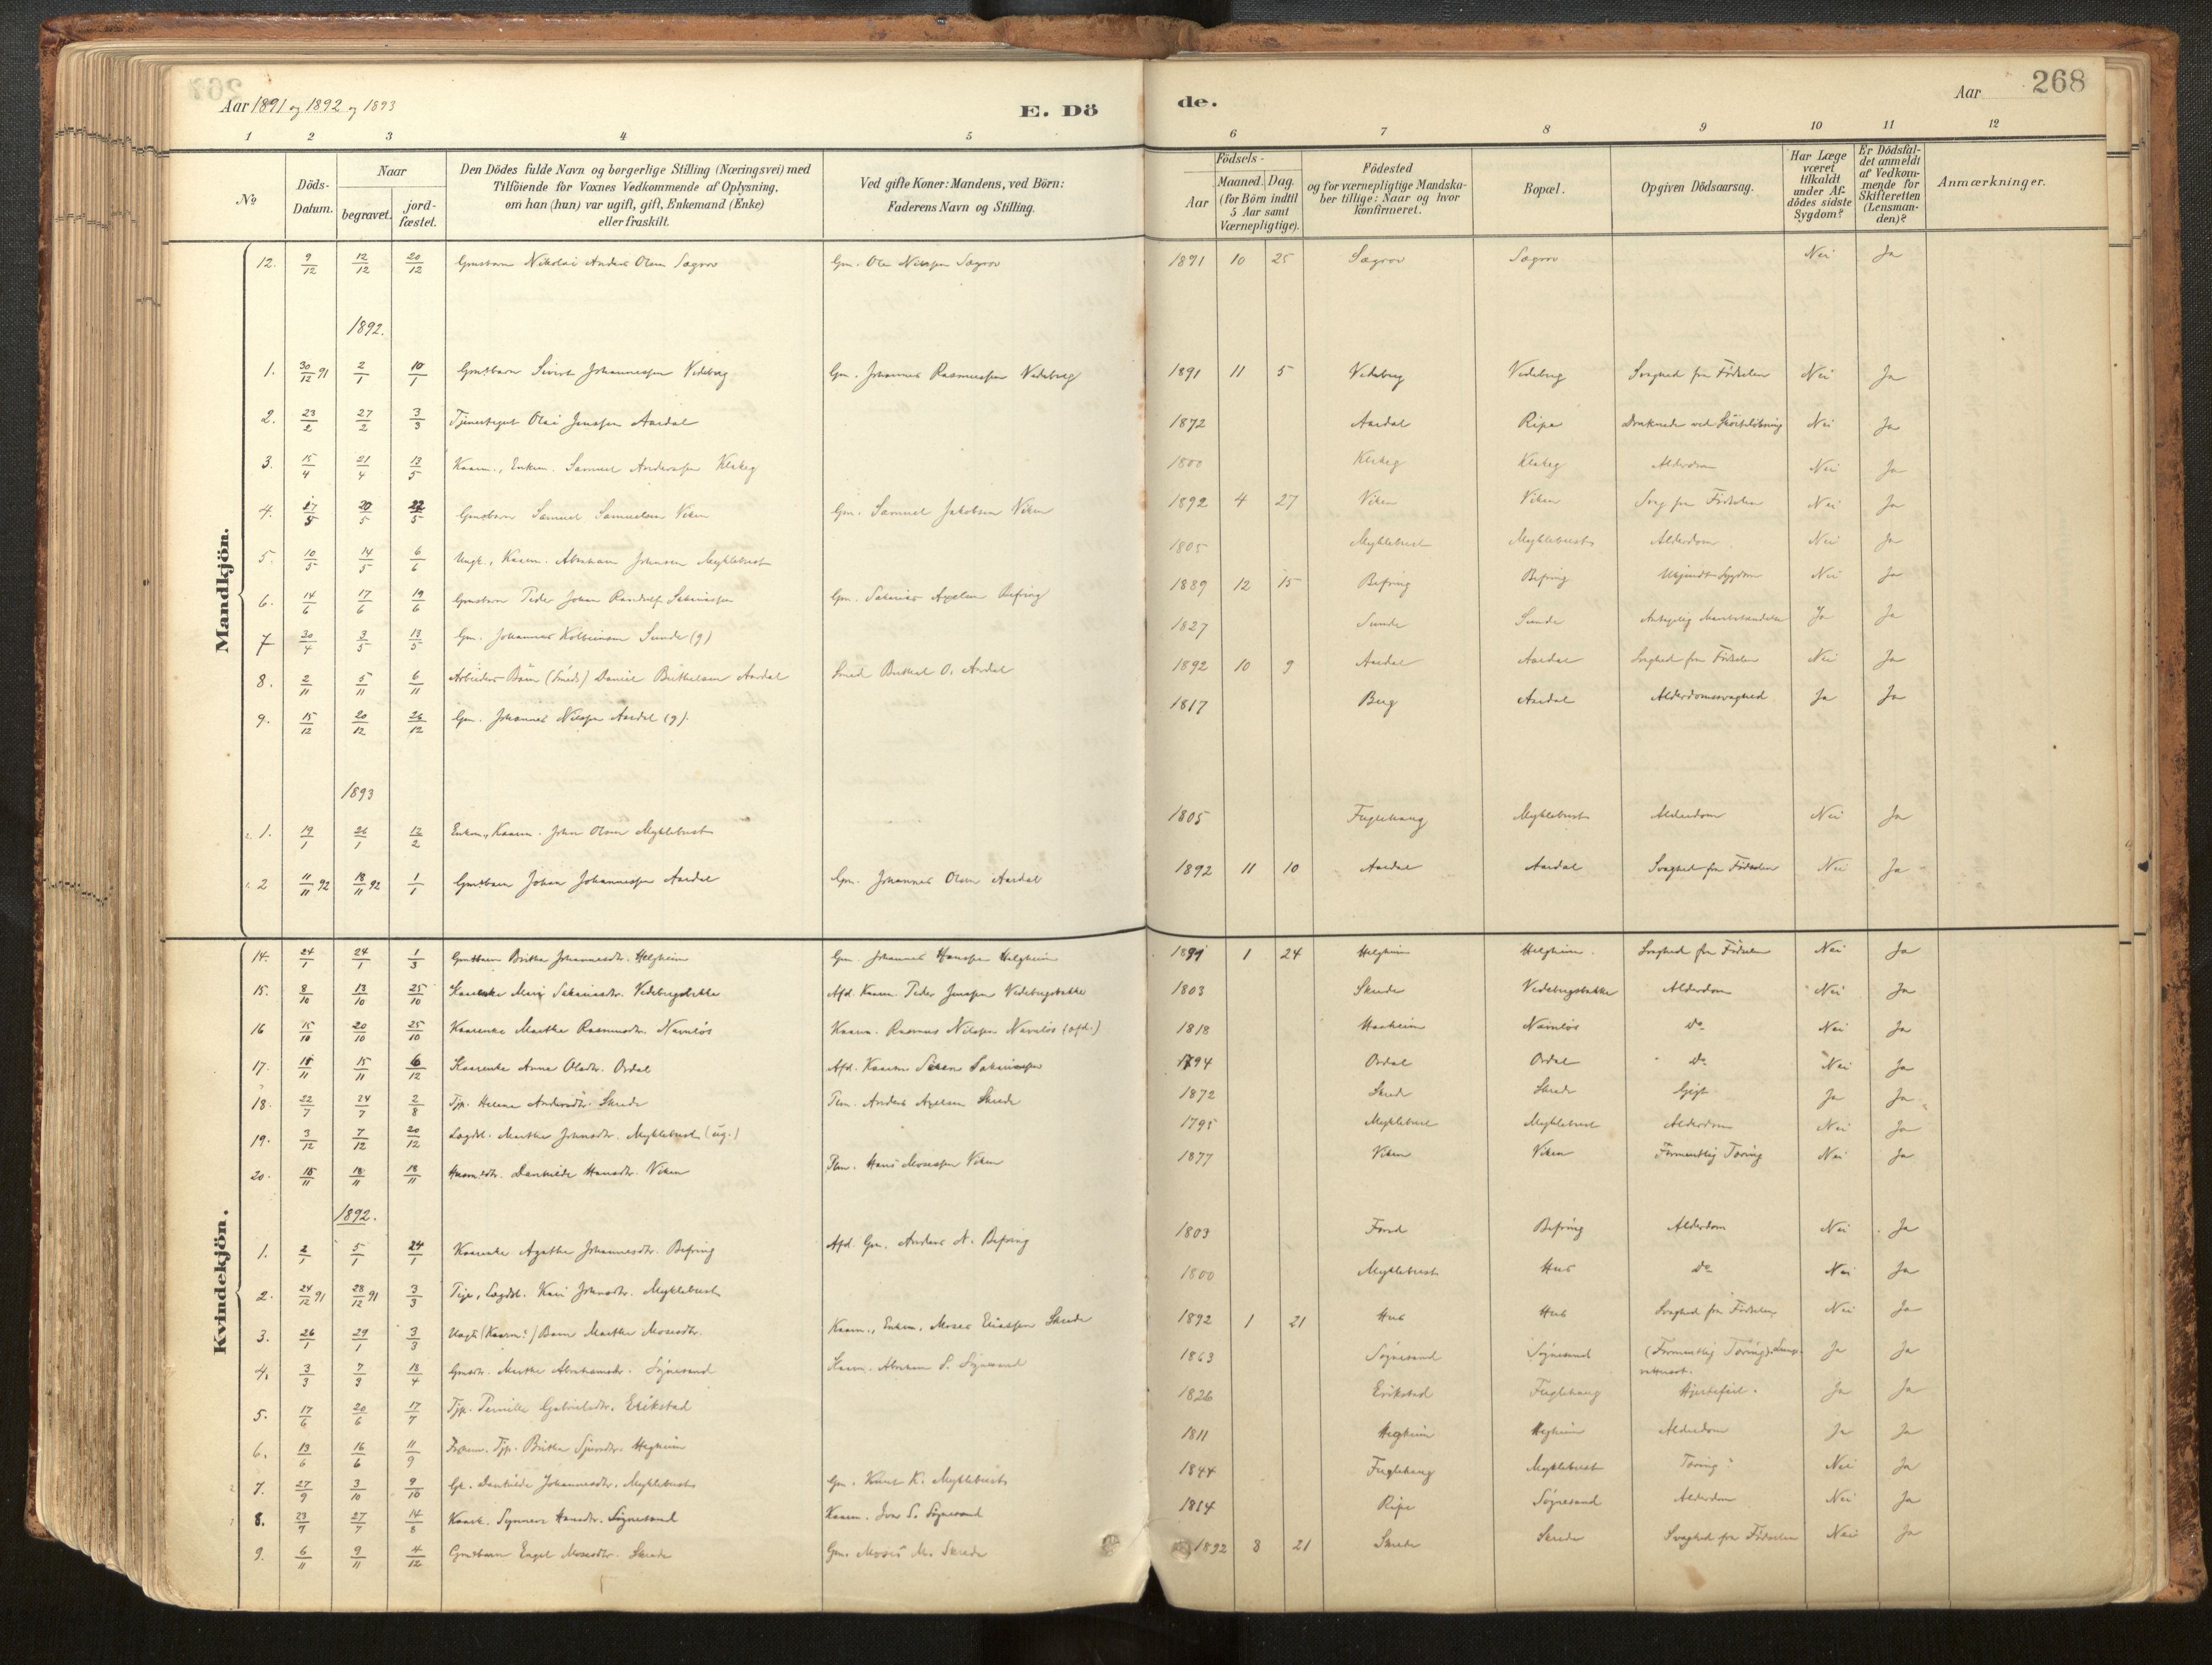 Aar 1891 og 1892 og 1893
E. Dö
de.
Aar
268
1 2 3 4 5 6 7 8 9 10 11 12
No
Döds-Datum.
Naar
begravet.
jord-fæstet.
Den Dödes fulde Navn og borgerlige Stilling (Næringsvei) med
Tilföiende for Voxnes Vedkommende af Oplysning,
om han (hun) var ugift, gift, Enkemand (Enke)
eller fraskilt.
Ved gifte Koner: Mandens, ved Börn:
Faderens Navn og Stilling.
Födsels-
Aar
Maaned. Dag.
(for Börn indtil
5 Aar samt
Værnepligtige).
Födested
og for værnepligtige Mandska-
ber tillige: Naar og hvor
konfirmeret.
Bopæl.
Opgiven Dödsaarsag.
Har Læge
været
tilkaldt
under Af-
dödes sidste
Sygdom?
Er Dödsfal-
det anmeldt
af Vedkom-
mende for
Skifteretten
(Lensman-
den)?
Anmærkninger.
Mandkjön.
12. 9/12 12/12 20/12 Gmsbarn Nikolai Anders Olsen Sægrov Gm. Ole Nilssen Sægrov 1891 10 25 Sægrov Sægrov Nei Ja
1892.
1. 30/12 91 2/1 10/1 Gmsbarn Sivert Johannessen Vedeberg Gm. Johannes Rasmussen Vedeberg 1891 11 5 Vedeberg Vedeberg Svaghed fra Födselen Nei Ja
2. 23/2 27/2 3/3 Tjenestegut Olai Jenssen Aardal 1872 Aardal Ripe Druknede ved Sköiteløbning Nei Ja
3. 15/4 21/4 13/5 Kaarm., Enkem. Samuel Anderssen Klakeg 1800 Klakeg Klakeg Alderdom Nei Ja
4. 17/5 20/5 22/5 Gmsbarn Samuel Samuelsen Viken Gm. Samuel Jakobsen Viken 1892 4 27 Viken Viken Svag fra Födselen Nei Ja
5. 10/5 14/5 6/6 Ungk., Kaarm. Abraham Johnsen Myklebust 1805 Myklebust Myklebust Alderdom Nei Ja
6. 14/6 17/6 19/6 Gmsbarn Peder Johan Randulf Sakariassen Gm. Sakarias Axelsen Befring 1889 12 15 Befring Befring Ukjendt Sygdom Nei Ja
7 30/4 3/5 13/5 Gm. Johannes Kolbeinsen Sunde (g) 1827 Sunde Sunde Ja Ja
8. 2/11 5/11 6/11 Arbeiders Barn (Smeds) Daniel Berthelsen Aardal Smed Berthel O. Aardal 1892 10 9 Aardal Aardal Svaghed fra Födselen Nei Ja
9. 15/12 20/12 26/12 Gm. Johannes Nilssen Aardal (g). 1817 Berg Aardal Alderdomssvaghed Ja Ja
1893
1. 19/1 26/1 12/2 Enkem., Kaarm. John Olsen Myklebust 1805 Fuglehaug Myklebust Alderdom Nei Ja
2 11/11 92 18/11 92 1/1 Gmsbarn Johan Johannessen Aardal Gm. Johannes Olsen Aardal 1892 11 10 Aardal Aardal Svaghed fra Födselen Nei Ja
Kvindekjön.
14. 24/1 24/1 1/3 Gmsbarn Brithe Johannesdtr. Helgheim Gm. Johannes Hanssen Helgheim 1891 1 24 Helgheim Helgheim. Svaghed fra Födselen Nei Ja
15. 8/10 13/10 25/10 Kaarenke Mari Sakariasdtr. Vedebergsbakke Afd. Kaarm. Peder Jenssen Vedebergsbakke 1803 Skrede Vedebergsbakke Alderdom Nei Ja
16 15/10 20/10 25/10 Kaarenke Marthe Rasmusdtr. Navnløs Kaarm. Rasmus Nilssen Navnløs (afd.) 1818 Navnløs Do Nei Ja
17. 11/11 15/11 6/12 Kaarenke Anna Olsdtr. Ordal Afd. Kaarm. Sakariassen 1794 Ordal Ordal Do Nei Ja
18. 22/7 24/7 2/8 Tjp. Helene Andersdtr. Skrede Plm. Anders Axelsen Skrede 1872 Skrede Skrede Gigt Ja Ja
19. 3/12 7/12 20/12 Lægdsl. Marthe Johnsdtr. Myklebust (ug.) 1795 Myklebust Myklebust Alderdom Nei Ja
20. 15/11 18/11 18/11 Husmdtr. Danhilde Hansdtr. Viken Plm. Hans Mosessen Viken 1877 Viken Viken Formentlig Tæring Nei Ja
1892.
1. 2/1 5/1 24/1 Kaarenke Agathe Johannesdtr. Befring Afd. Gm. Anders A. Befring 1803 Fond Befring Alderdom Nei Ja
2. 24/12 91 28/12 91 3/3 Pige, Lægdsl. Kari Johnsdtr. Myklebust 1800 Myklebust Hus Do Nei Ja
3. 26/1 29/1 3/3 (Kaarm.) Barn Marthe Mosesdtr. Kaarm., Enkem. Moses Eliassen Skrede 1892 1 21 Hus Hus Svaghed fra Födselen Nei Ja
4. 3/3 7/3 18/4 Gmsdtr. Marthe Abrahamsdtr. Sögnesand Kaarm. Abraham S. Sögnesand 1863 Sögnesand Sögnesand (Formentlig Tæring). Ja Ja
5. 17/6 20/6 17/7 Tjp. Pernille Gabrielsdtr. Erikstad 1826 Erikstad Fuglehaug Hjertefeil. Ja Ja
6. 13/6 16/6 11/9 Tjp. Brithe Sjursdtr. Hegheim 1811 Hegheim Hegheim Alderdom Ja Ja
7. 27/9 3/10 9/10 Gk. Danhilde Johannesdtr. Myklebust Gm. Knut K. Myklebust 1844 Fuglehaug Myklebust Tæring Nei Ja
8. 23/7 27/7 14/8 Kaark. Synneve Hansdtr. Sögnesand Kaarm. Ivar S. Sögnesand 1814 Ripe Sögnesand Alderdom Nei Ja
9. 6/11 9/11 4/12 Gmsbarn Engel Mosesdtr. Skrede Gm. Moses M. Skrede 1892 8 21 Skrede Skrede Svaghed fra Födselen Nei Ja